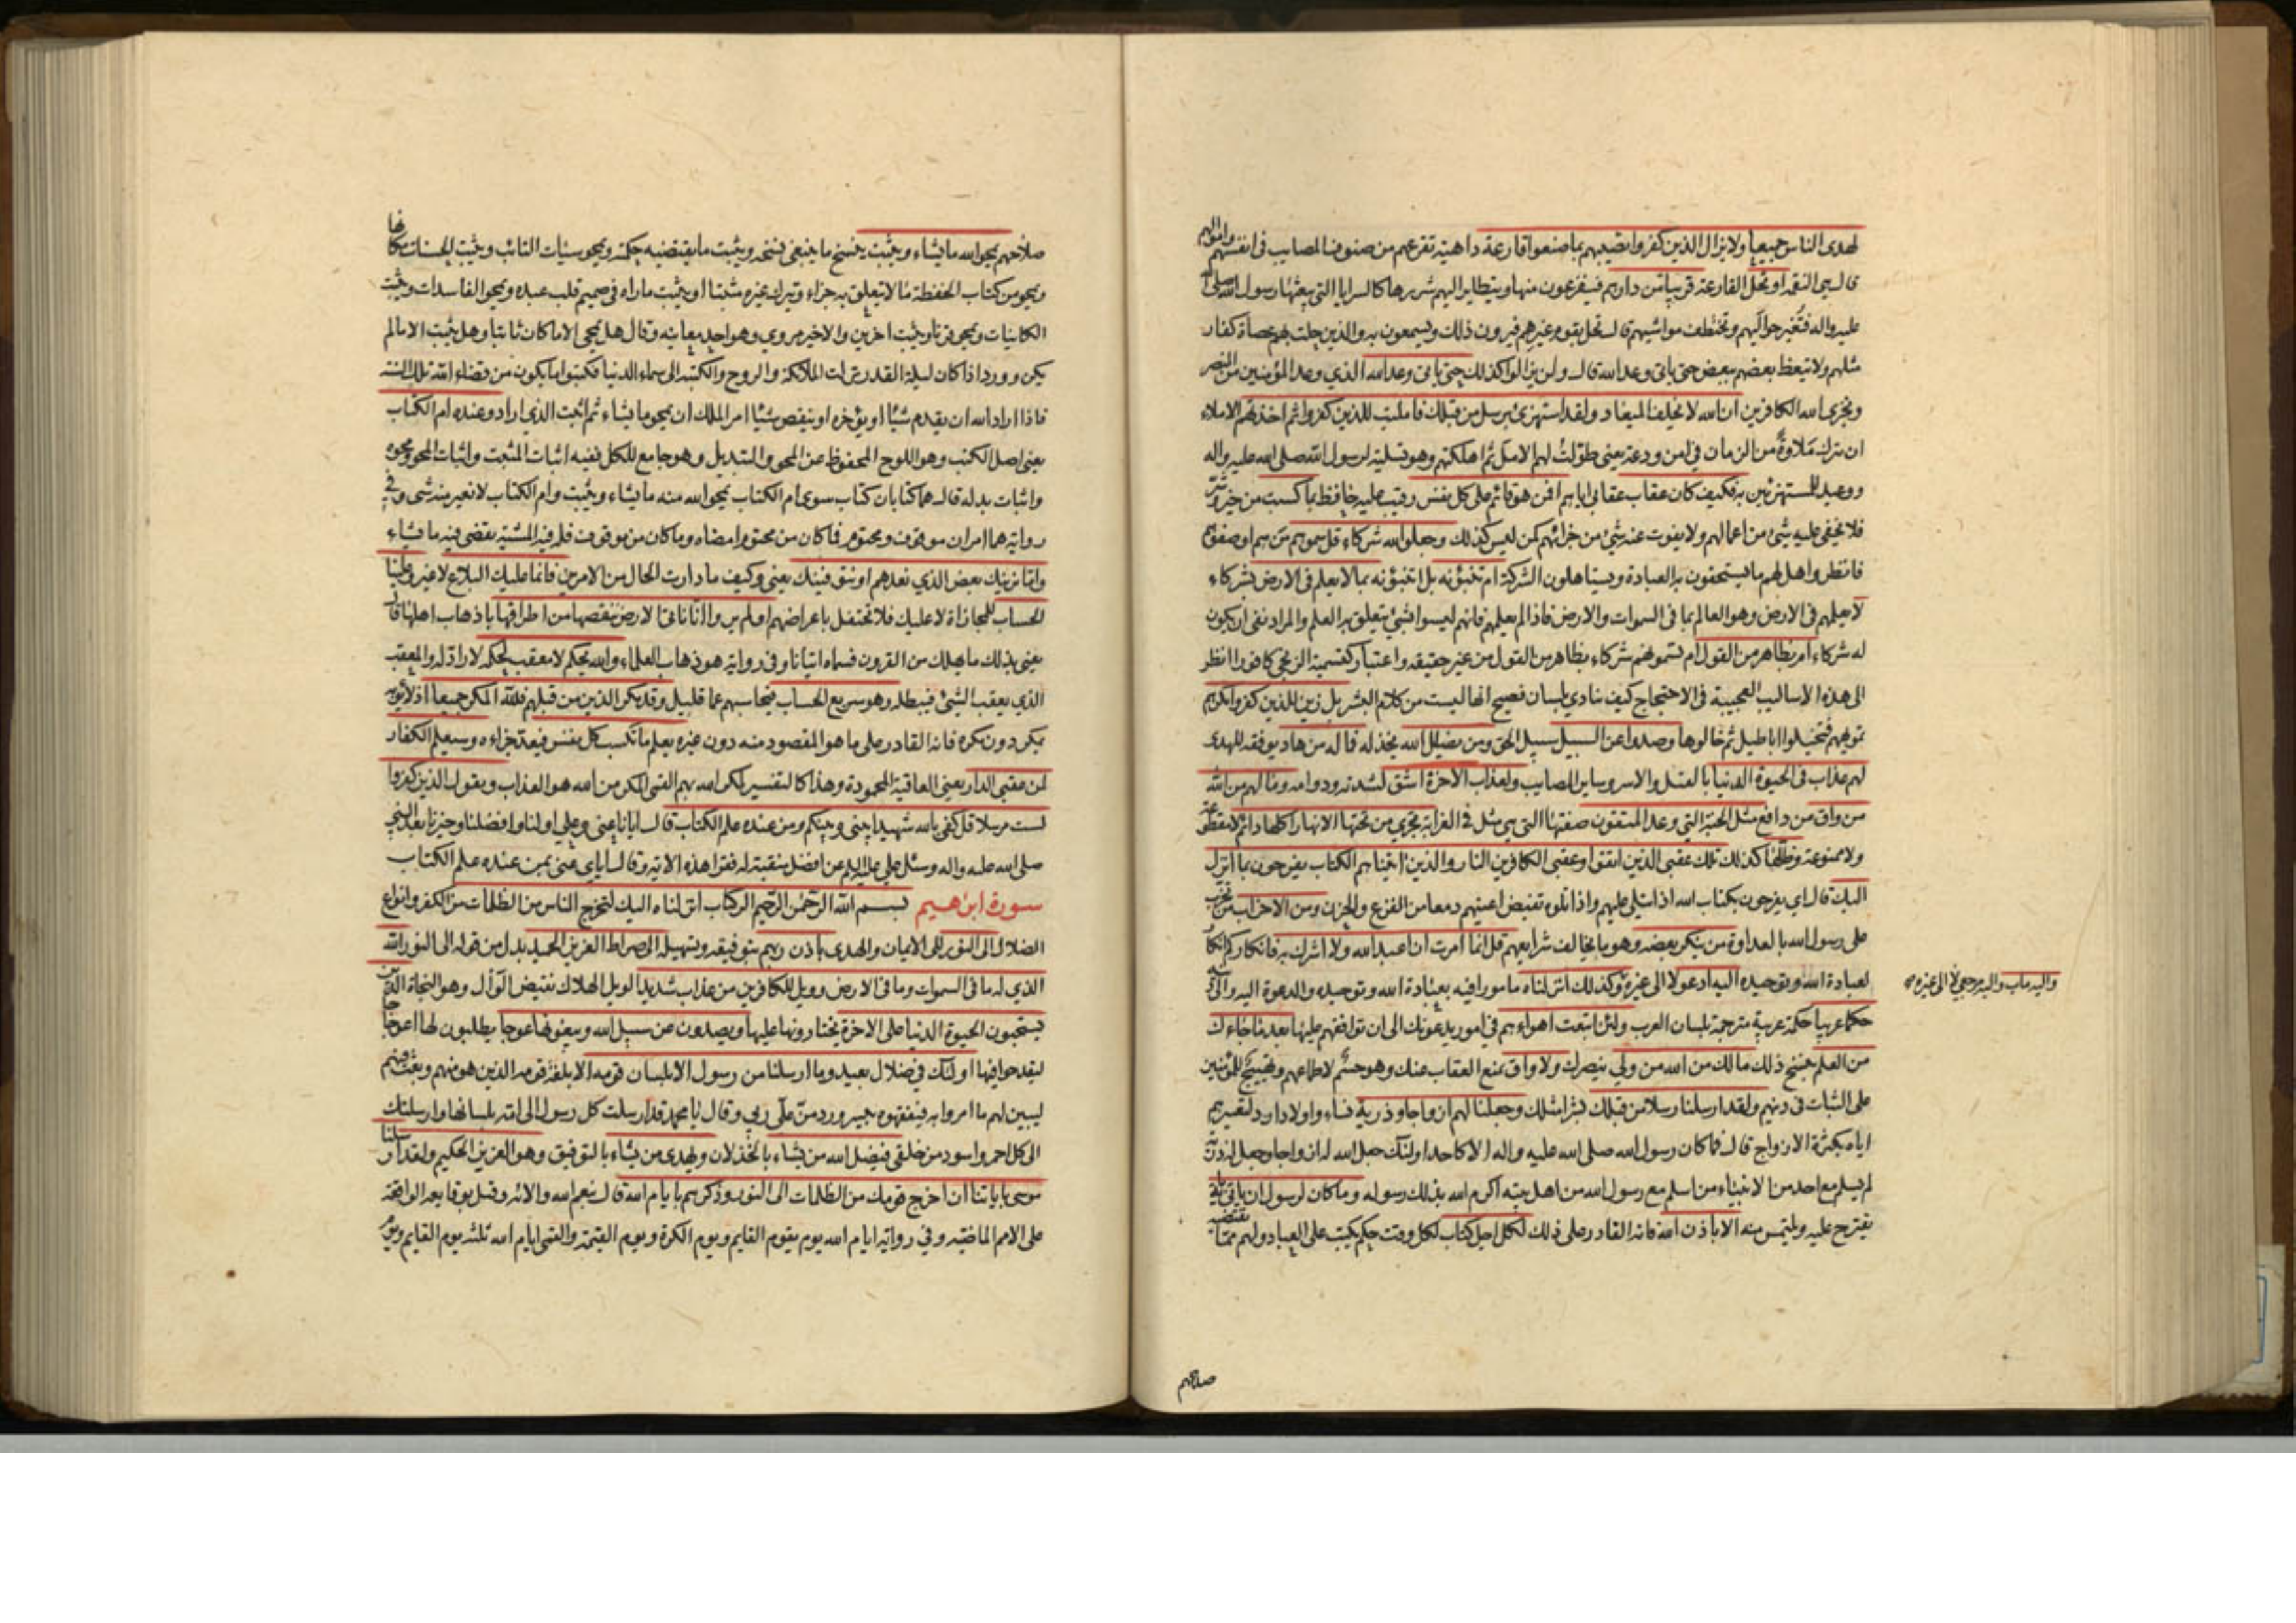 لهدى الناس جميعا ولا يزال الذين كفروا تصيبهم بما صنعوا قارعة داهية تقرعهم من صنوف المصايب في انفسهم واموالهم
قال هي النقمة او تحل القارعة قريبا من دارهم فيفزعون منها ويتطاير اليهم شررها كالسرايا التي يبعثها رسول الله صلى الله
عليه واله فتغير حواليهم وتختطف مواشيهم قال تحل بقوم غيرهم فيرون ذلك ويسمعون به والذين حلت بهم عصاة كفار
مثلهم ولا يتعظ بعضهم ببعض حتى ياتي وعد الله قال ولن يزالوا كذلك حتى ياتي وعد الله الذي وعد المؤمنين من النصر
ويخزي الله الكافرين ان الله لا يخلف الميعاد ولقد استهزئ برسل من قبلك فامليت للذين كفروا ثم اخذتهم الاملاء
ان يترك ملاوة من الزمان في امن ودعة يعني طولت لهم الامل ثم اهلكتهم وهو تسلية لرسول الله صلى الله عليه واله
ووعيد للمستهزئين به فكيف كان عقاب عقابي اياهم افمن هو قائم على كل نفس رقيب عليه حافظ بما كسبت من خير وشر
فلا يخفى عليه شئ من اعمالهم ولا يفوت عنده شئ من جزائهم كمن ليس كذلك وجعلوا لله شركاء قل سموهم من هم او صفوهم
فانظروا هل لهم ما يستحقون به العبادة ويستاهلون الشركة ام تنبؤنه بل اتنبؤنه بما لا يعلم في الارض بشركاء
لا يعلمهم في الارض وهو العالم بما في السموات والارض فاذا لم يعلمهم فانهم ليسوا شئ يتعلق به العلم والمراد نفي ان يكون
له شركاء ام بظاهر من القول ام تسمونهم شركاء بظاهر من القول من غير حقيقة واعتبار كتسمية الزنجي كافورا انظر
الى هذه الاساليب العجيبة في الاحتجاج كيف تنادي بلسان فصيح انها ليست من كلام البشر بل زين للذين كفروا مكرهم
تمويههم فتخيلوا اباطيل ثم خالوها وصدوا عن السبيل سبيل الحق ومن يضلل الله يخذله فما له من هاد يوفقه للهدى
لهم عذاب في الحيوة الدنيا بالقتل والاسر وساير المصايب ولعذاب الاخرة اشق لشدته ودوامه وما لهم من الله
من واق من دافع مثل الجنة التي وعد المتقون صفتها التي هي مثل في الغرابة تجري من تحتها الانهار اكلها دائم لا مقطوعة
ولا ممنوعة وظلها كذلك تلك عقبى الذين اتقوا وعقبى الكافرين النار والذين اتيناهم الكتاب يفرحون بما انزل
اليك قال اي يفرحون بكتاب الله اذا تتلى عليهم واذا تلوه تفيض اعينهم دمعا من الفزع والحزن ومن الاحزاب من تحزب
على رسول الله بالعداوة من ينكر بعضه وهو ما يخالف شرايعهم قل انما امرت ان اعبد الله ولا اشرك به فانكاركم انكار
لعبادة الله وتوحيده اليه ادعو لا الى غيره وكذلك انزلناه مامورا فيه بعبادة الله وتوحيده والدعوة اليه والى دينه
واليه ماب واليه مرجعي لا الى غيره
حكما عربيا حكمة عربية مترجمة بلسان العرب ولئن اتبعت اهواءهم في امور يدعونك الى ان توافقهم عليها بعد ما جاءك
من العلم بنسخ ذلك ما لك من الله من ولي ينصرك ولا واق يمنع العقاب عنك وهو حسم لاطماعهم وتهييج للمؤمنين
على الثبات في دينهم ولقد ارسلنا رسلا من قبلك بشرا مثلك وجعلنا لهم ازواجا وذرية نساء واولادا رد لتعييرهم
اياه بكثرة الازواج قال فما كان رسول الله صلى الله عليه واله الا كاحد اولئك جعل الله له ازواجا وجعل له ذرية
لم يسلم مع احد من الانبياء من اسلم مع رسول الله من اهل بيته اكرم الله بذلك رسوله وما كان لرسول ان ياتي باية
يقترح عليه ويلتمس منه الا باذن الله فانه القادر على ذلك لكل اجل كتاب لكل وقت حكم يكتب على العباد ولهم ما يقتضيه
صلاحهم
صلاحهم يمحو الله ما يشاء ويثبت ينسخ ما ينبغي نسخه ويثبت ما يقتضيه حكمته ويمحو سيئات التائب ويثبت الحسنات مكانها
ويمحو من كتاب الحفظة ما لا يتعلق به جزاء ويترك غيره مثبتا او يثبت ما راه في صميم قلب عبده ويمحو الفاسدات ويثبت
الكاينات ويمحو قرنا ويثبت اخرين والاخير مروي وهو احد معانيه وقال هل يمحى الا ما كان ثابتا وهل يثبت الا ما لم
يكن وورد اذا كان ليلة القدر نزلت الملائكة والروح والكتبة الى سماء الدنيا فيكتبوا ما يكون من قضاء الله تلك السنة
فاذا اراد الله ان يقدم شيئا او يؤخره او ينقص شيئا امر الملك ان يمحو ما يشاء ثم اثبت الذي اراد وعنده ام الكتاب
يعني اصل الكتب وهو اللوح المحفوظ عن المحو والتبديل وهو جامع للكل ففيه اثبات المثبت واثبات المحو ومحوه
واثبات بدله قال هما كتابان كتاب سوى ام الكتاب يمحو الله منه ما يشاء ويثبت وام الكتاب لا تغير منه شئ وفي
رواية هما امران موقوف ومحتوم فما كان من محتوم امضاه وما كان من موقوف فله فيه المشية يقضي فيه ما يشاء
واما نرينك بعض الذي نعدهم او نتوفينك يعني وكيف ما دارت الحال من الامرين فانما عليك البلاغ لا غير وعلينا
الحساب للمجازاة لا عليك فلا تحتفل باعراضهم اولم يروا انا ناتي الارض ننقصها من اطرافها باذهاب اهلها قال
يعني بذلك ما يهلك من القرون فسماه اتيانا وفي رواية هو ذهاب العلماء والله يحكم لا معقب لحكمه لا راد له والمعقب
الذي يعقب الشئ فيبطله وهو سريع الحساب فيحاسبهم عما قليل وقد مكر الذين من قبلهم فلله المكر جميعا اذ لا يؤبه
بمكر دون مكره فانه القادر على ما هو المقصود منه دون غيره يعلم ما تكسب كل نفس فيعد جزاءه وسيعلم الكفار
لمن عقبى الدار يعني العاقبة المحمودة وهذا كالتفسير لمكر الله بهم القمي المكر من الله هو العذاب ويقول الذين كفروا
لست مرسلا قل كفى بالله شهيدا بيني وبينكم ومن عنده علم الكتاب قال ايانا عنى وعلي اولنا وافضلنا وخيرنا بعد النبي
صلى الله عليه واله وسئل علي عليه السلم عن افضل منقبة له فقرا هذه الاية وقال اياي عنى بمن عنده علم الكتاب
سورة ابراهيم بسم الله الرحمن الرحيم الر كتاب انزلناه اليك لتخرج الناس من الظلمات من الكفر وانواع
الضلال الى النور الى الايمان والهدى باذن ربهم بتوفيقه وتسهيله الى صراط العزيز الحميد بدل من قوله الى النور الله
الذي له ما في السموات وما في الارض وويل للكافرين من عذاب شديد الويل الهلاك نقيض الوال وهو النجاة الذين
يستحبون الحيوة الدنيا على الاخرة يختارونها عليها ويصدون عن سبيل الله ويبغونها عوجا يطلبون لها اعوجاجا
ليقدحوا فيها اولئك في ضلال بعيد وما ارسلنا من رسول الا بلسان قومه الا بلغة قومه الذين هو منهم وبعث فيهم
ليبين لهم ما امروا به فيفقهوه بيسر ورد من علي ربي وقال يا محمد قد ارسلت كل رسول الى امته بلسانها وارسلتك
الى كل احمر واسود من خلقي فيضل الله من يشاء بالخذلان ويهدي من يشاء بالتوفيق وهو العزيز الحكيم ولقد ارسلنا
موسى باياتنا ان اخرج قومك من الظلمات الى النور وذكرهم بايام الله قال بنعم الله والائه وقيل بوقايعه الواقعة
على الامم الماضية وفي رواية ايام الله يوم يقوم القايم ويوم الكرة ويوم القيمة والقمي ايام الله ثلثة يوم القايم ويوم